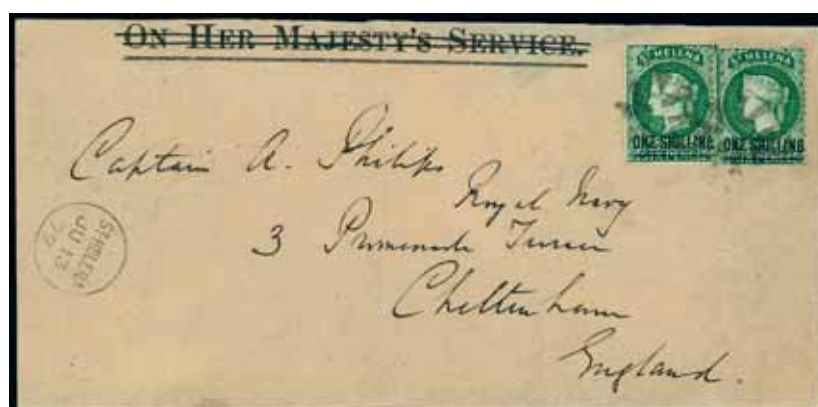 ON HER MAJESTY'S SERVICE.
ST HELENA
ONE SHILLING
ST HELENA
ONE SHILLING
Captain A. Philips
Royal Navy
3 Promenade Terrace
Cheltenham
England.
ST HELENA
JU 13
79